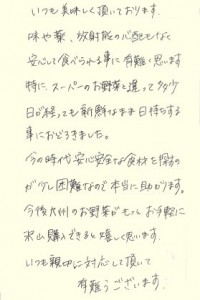 いつも美味しく頂いております.
味や薬、放射能の心配もなく
安心して食べられる事に有難く思います
特に、スーパーのお野菜と違って多少
日が経っても新鮮なまま日持ちする
事におどろきました。
今の時代安心安全な食材を探すの
が少し困難なので本当に助かります。
今後九州のお野菜がもっとお手軽に
沢山購入できると嬉しく思います.
いつも親切に対応して頂いて
有難うございます.